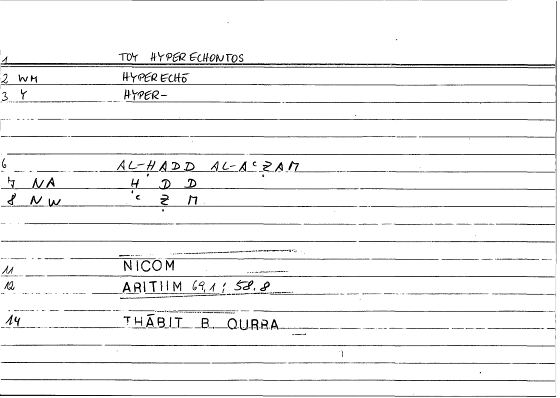 1 TOY HYPERECHONTOS
2 WM HYPERECHŌ
3 Y HYPER-
6 AL-ḤADD AL-AʿẒAM
7 NA Ḥ D D
8 NW ʿ Ẓ M
11 NICOM
12 ARITIIM 69,1; 58.8
14 THĀBIT B. QURRA